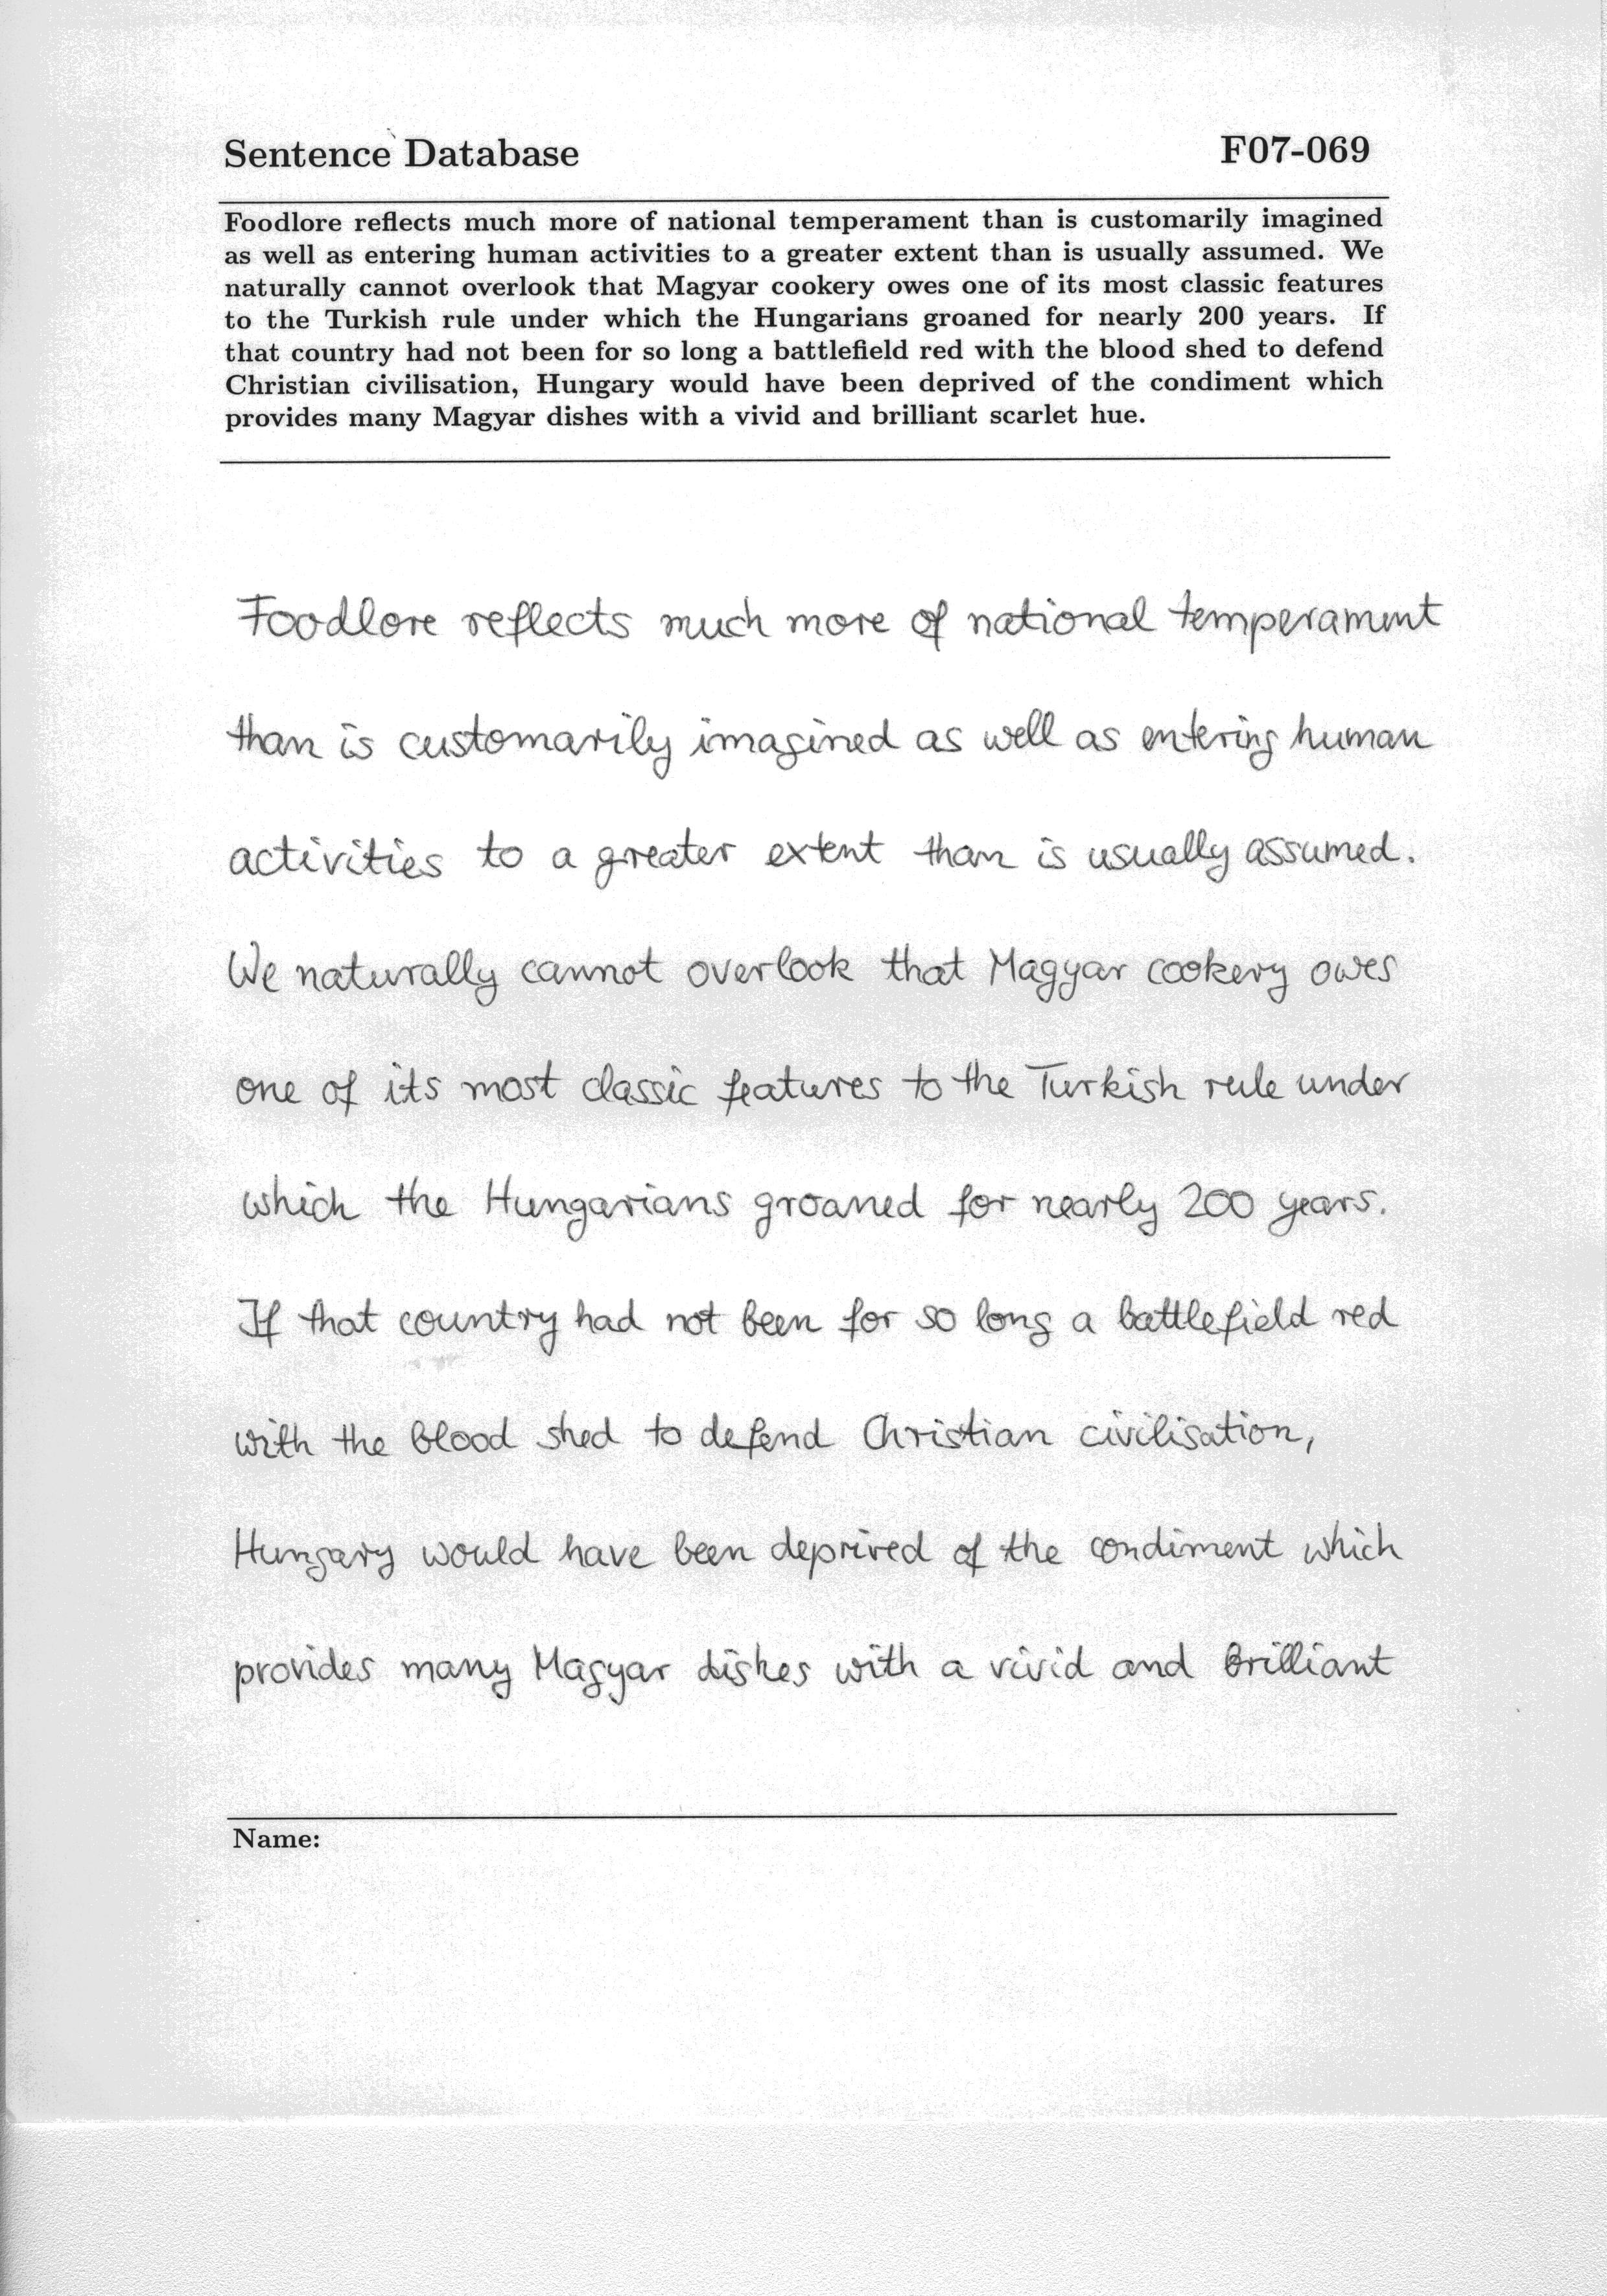 Sentence Database
F07-069
Foodlore reflects much more of national temperament than is customarily imagined
as well as entering human activities to a greater extent than is usually assumed. We
naturally cannot overlook that Magyar cookery owes one of its most classic features
to the Turkish rule under which the Hungarians groaned for nearly 200 years. If
that country had not been for so long a battlefield red with the blood shed to defend
Christian civilisation, Hungary would have been deprived of the condiment which
provides many Magyar dishes with a vivid and brilliant scarlet hue.
Foodlore reflects much more of national temperament
than is customarily imagined as well as entering human
activities to a greater extent than is usually assumed.
We naturally cannot overlook that Magyar cookery owes
one of its most classic features to the Turkish rule under
which the Hungarians groaned for nearly 200 years.
If that country had not been for so long a battlefield red
with the blood shed to defend Christian civilisation,
Hungary would have been deprived of the condiment which
provides many Magyar dishes with a vivid and brilliant
Name: